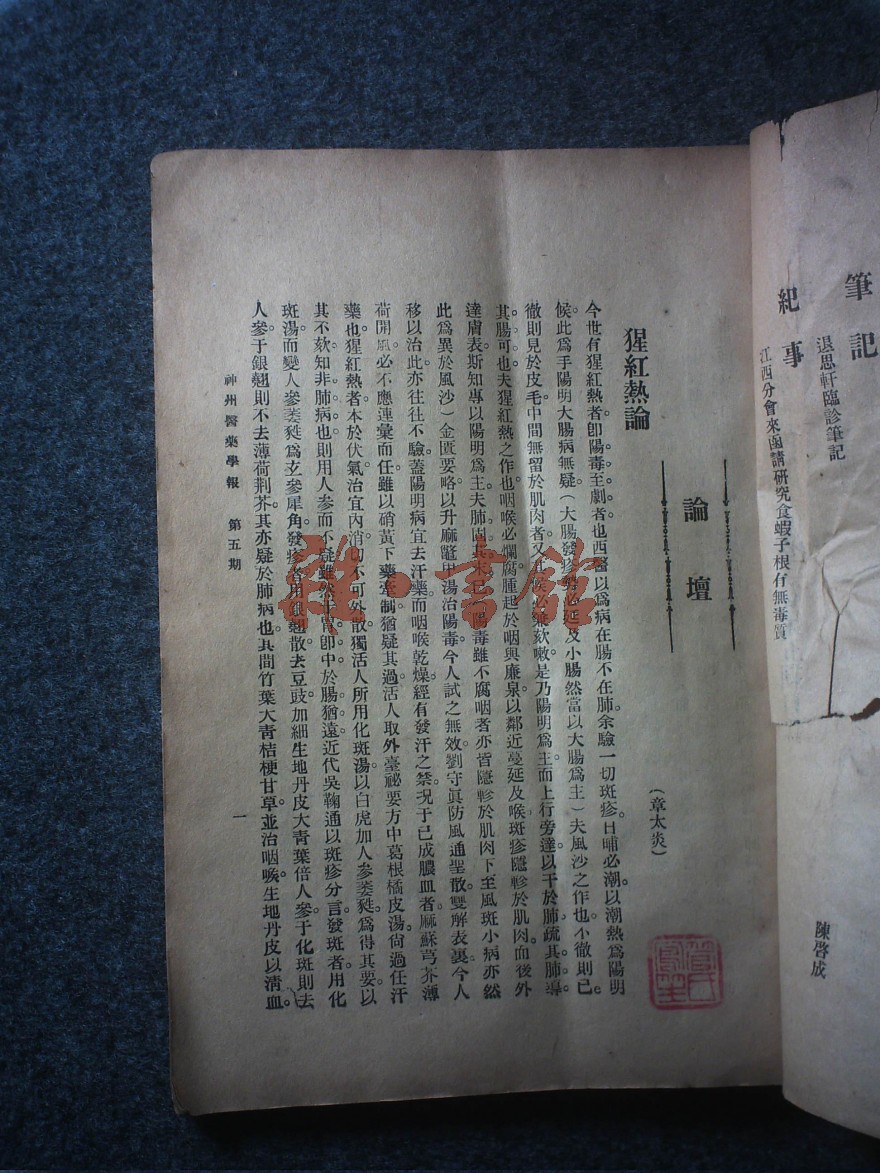 筆記
退思軒臨診筆記
陳啓成
紀事
江西分會來函請研究食蝦子根有無毒質
論壇
猩紅熱論
(章太炎)
今世有猩紅熱者。卽陽毒至劇者也。西醫以爲病在腸不在肺。余驗一切斑疹。日晡必潮。以潮熱爲陽明
候。此爲手陽明大腸病無疑。(大腸發疹勢必延及小腸然當以大腸爲主)夫風沙之作也。小徹則已。
徹則見於皮毛。中間無留於肌肉者。又其候必兼欬嗽。是乃陽明爲主。而上行旁達以干於肺。疏其肺。導
其腸可也。夫猩紅熱之作也。咽喉必爛。腐腫起於咽與廉泉。以鄰近蔓延及喉。斑疹隱軫於肌肉而後外
達膚表。斯知專以陽明爲主。夫肺固其末已。(陽毒雖不腐咽者亦皆隱軫於肌肉下至風斑小病亦然
此爲異於風沙)金匱要略以升麻鼈甲湯治陽毒。今人試之無效。劉守眞防風通聖散。雙解表裏。今人
移以治此。亦往往不驗。蓋陽明病宜去汗藥。而咽喉乾燥。經有發汗之禁。况于已成膿血者。麻蘇芎芥薄
荷開風。必不應連彙而任。雖以硝黃下藥牽制。猶疑其過。活人取外臺祕要方中葛根橘皮湯。尙過任汗
藥也。猩紅熱者。本於伏氣。治宜內消。切不可外散。獨活人所用化斑湯。以白虎加人參萎蕤。爲得其要。以
其不欬。知非肺病也。則用人參而不疑。雖然。于胃卽中。於腸猶遠。近代吳鞠通以斑疹分言。發斑者用化
斑湯。而變人參萎蕤爲玄參犀角。發疹者用銀翹散去豆豉。加細生地丹皮大青葉倍人參。于化斑則去
人參。于銀翹則不去薄荷荆芥。其亦疑於肺病也。其間竹葉大青桔梗甘草。並治咽喉。生地丹皮以淸血。
神州醫藥學報 第五期
一